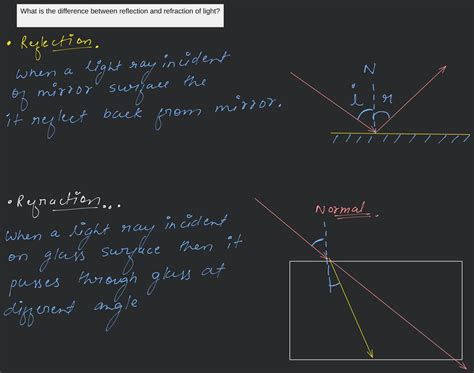 What is the difference between reflection and refraction of light?
• Reflection.
When a light ray incident
of mirror surface the
it reflect back from mirror.
N
i r
• Refraction...
When a light ray incident
on glass surface then it
passes through glass at
different angle
Normal.